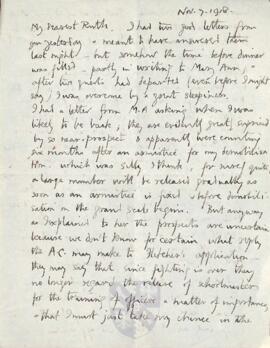 Nov. 7. 1918.
My dearest Ruth. I had two good letters from
you yesterday & meant to have answered them
last night - but somehow the time before dinner
was filled - partly in writing to Mary Ann, &
after two guests had departed (even before I might
say) I was overcome by a great sleepiness.
I had a letter from M asking when I was
likely to be back; they are evidently great, surprised
by so near a prospect & apparently were counting
six months after an armistice for my demobilisa-
tion - which was silly I think, for surely quite
a large number will be released gradually as
soon as an armistice is fixed before demobili-
sation on the grand scale begins. But anyway
as I explained to her the prospects are uncertain
because we don't know for certain what reply
the A.C. may make to Fletcher's application
they may say that since fighting is over they
no longer regard the release of schoolmasters
for the training of officers a matter of importance,
& that I must just take my chance in the